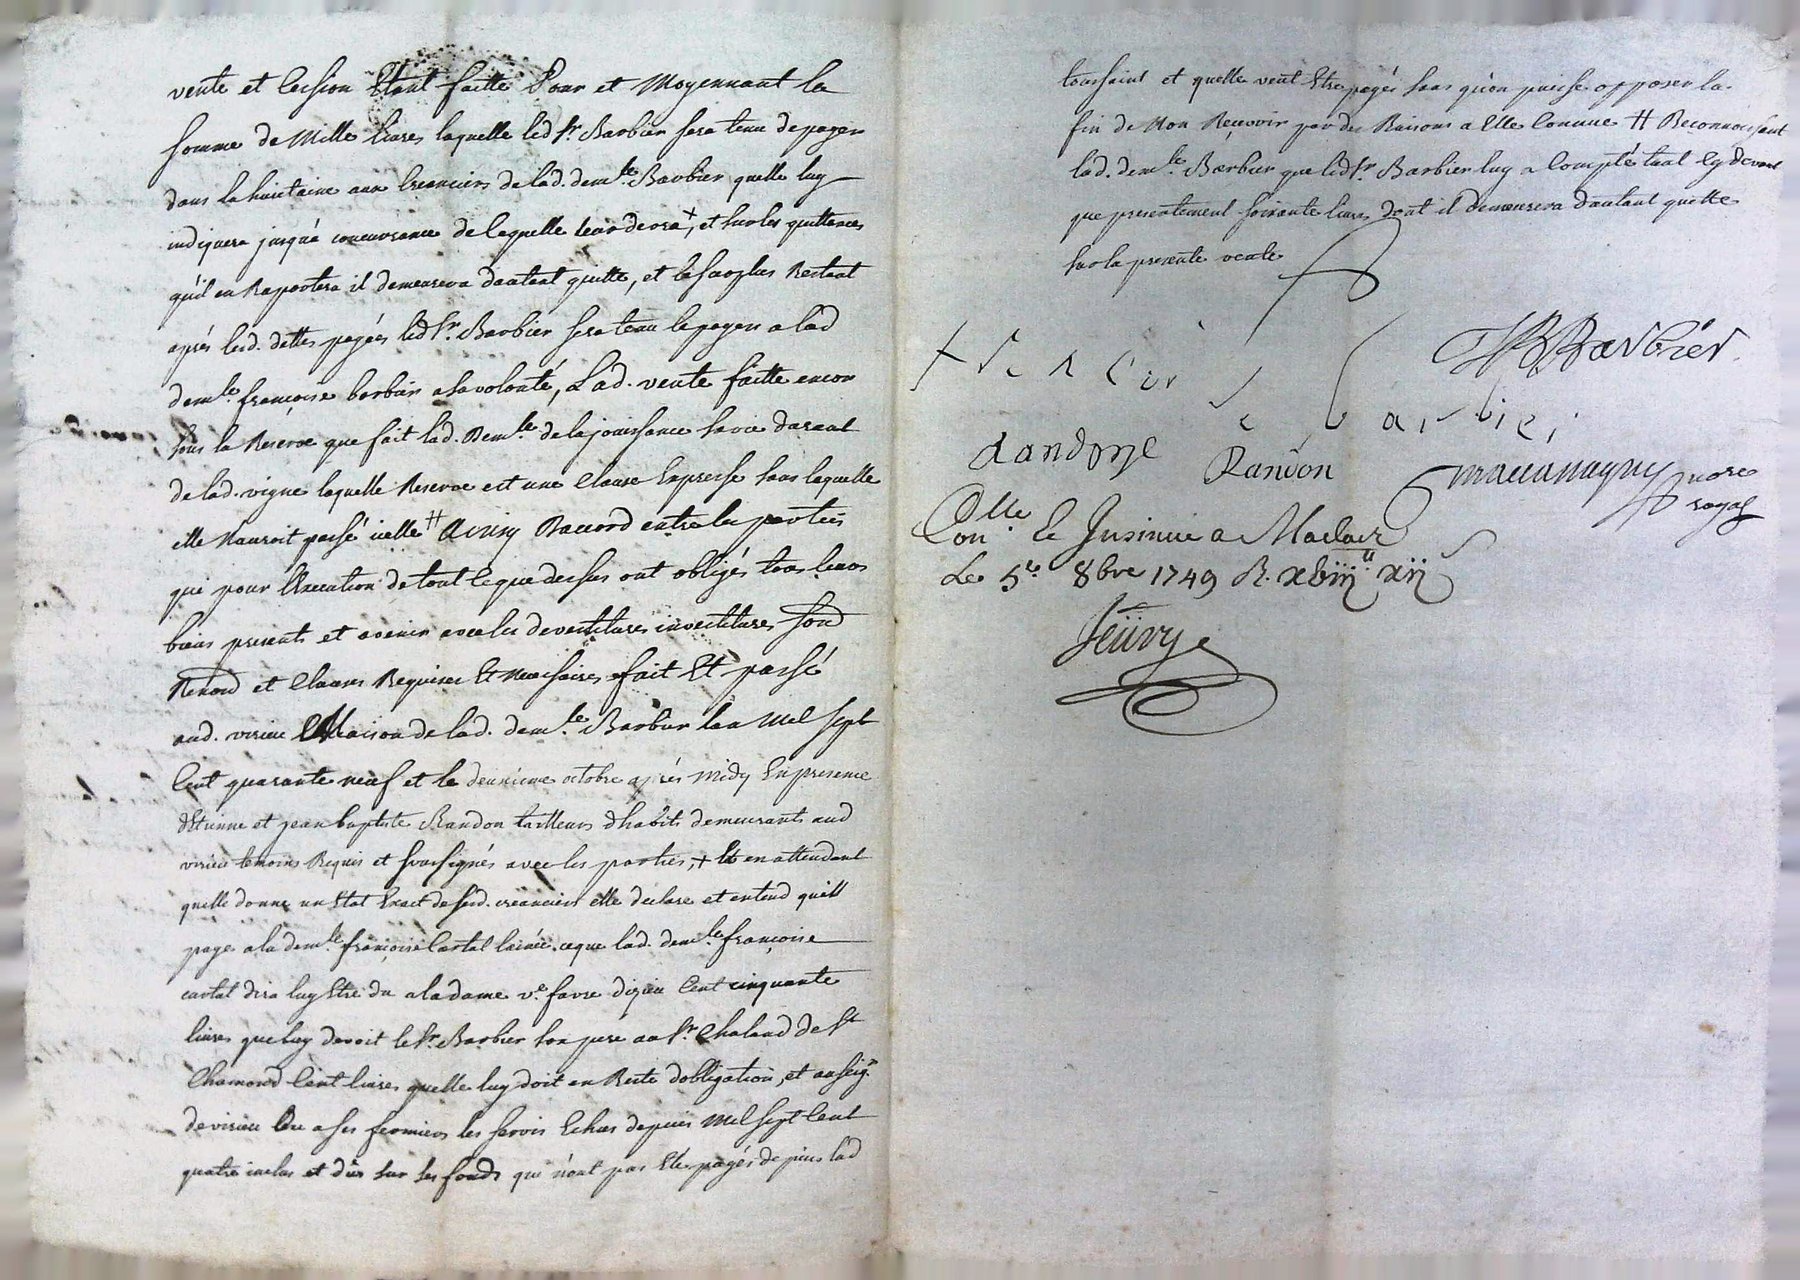 vente et Cession Etant faitte Pour et Moyennant la
somme de Mille livres laquelle led Sr. Barbier sera tenu de payer
dans la huictaine aux Creanciers de lad. demlle Barbier quelle luy
indiquera jusqu'a concurrance de laquelle leur devra +, et sur les quittances
qu'il en Raportera il demeurera dautant quitte, et le surplus Restant
aprés lesd. dettes payées led Sr. Barbier sera tenu le payer a lad
demlle françoise barbier a sa volonté, Lad. vente faitte encor
sous la Reserve que fait lad. Demlle de la jouissance sa vie durant
de lad. vigne laquelle Reserve est une Clause Expresse sans laquelle
elle N'auroit passé icelle # Ainsy D'accord entre les parties
que pour l'Execution de tout Ce que dessus ont obligés tous leurs
biens presents et avenir avec les devestitures investitures
et Clauses Requises Et necessaires fait Et passé
aud. virieu Maison de lad. demlle Barbier lan Mil sept
Cent quarante neuf et le deuxieme octobre après Midy En presence
d'Etienne et jean baptiste Randon tailleurs d'habits demeurants aud
virieu temoins Requis et soussignés avec les parties, + Et en attendant
quelle donne un Etat Exact de sesd. creanciers elle declare et entend quill
paye a la demlle françoise Cartal lainée ce que lad. demlle françoise
cartal dira luy Etre du a la dame ve. favre dizieu Cent cinquante
livres que luy devoit le Sr. Barbier son pere au Sr. Chaland de St
Chamond Cent livres quelle luy doit en Reste d'obligation, et au seigr.
de virieu Ou a ses fermiers les servis Echus depuis Mil sept Cent
quatre inclus et dus sur les fonds qui n'ont pas Etés payés depuis lad
toussaint et quelle veut Etre payés sans qu'on puisse opposer la
fin de Non Recevoir par des Raisons a Elle Connue # Reconnoissant
lad. demlle Barbier que led Sr. Barbier luy a Compté tant Cy devant
que presentement soixante livres dont il demeurera dautant quitte
sur la presente vente
Barbier
francoise barbier
Randon
Randon
nore
royal
Con lle Et Insinué a Maclas
Le 5e 8bre 1749 R.